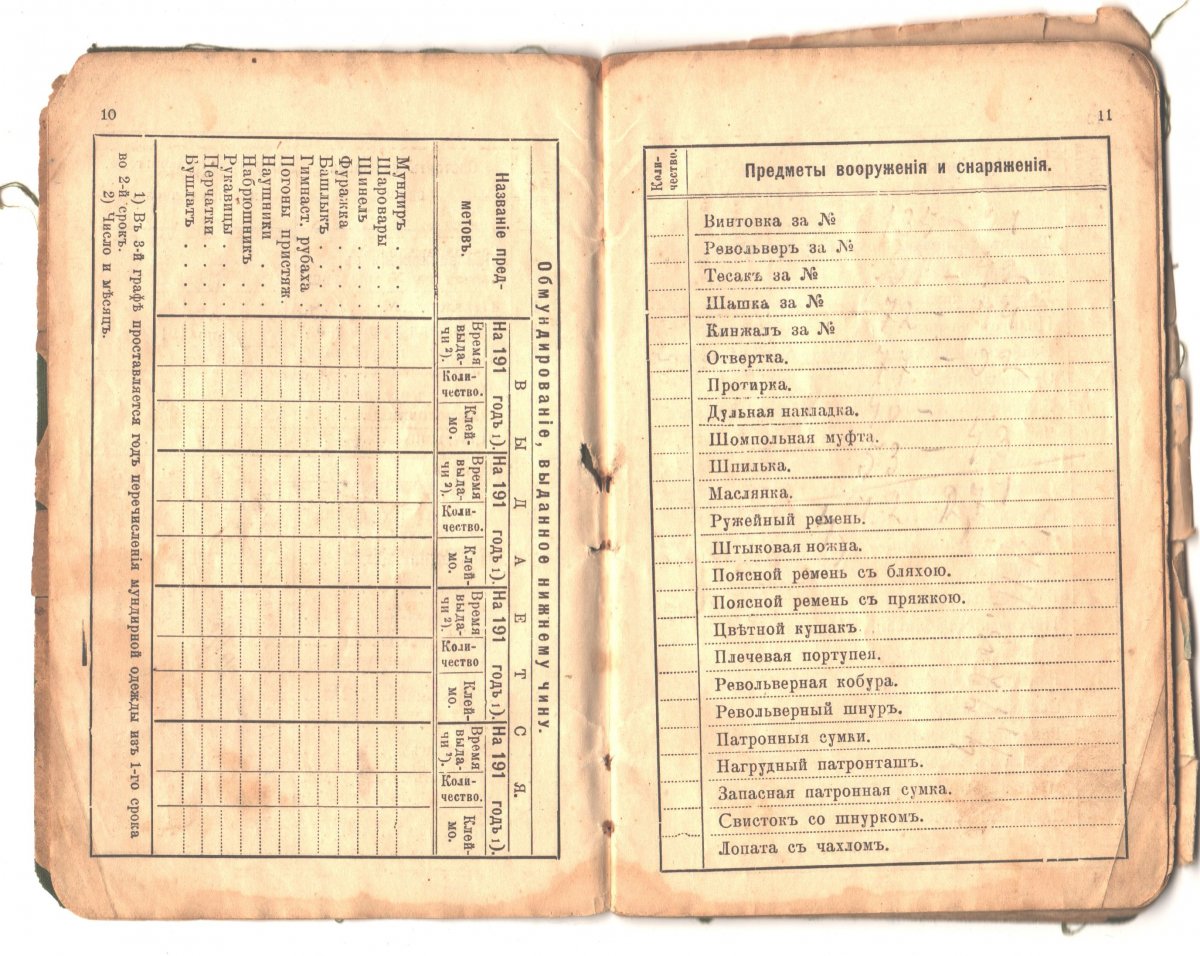 10
Обмундированіе, выданное нижнему чину.
Названіе пред-
метовъ.
ВЫДАЕТСЯ.
На 191 годъ 1). На 191 годъ 1). На 191 годъ 1). На 191 годъ 1).
Время выда-чи 2). Коли-чество. Клей-мо. Время выда-чи 2). Коли-чество. Клей-мо. Время выда-чи 2). Коли-чество Клей-мо. Время выда-чи 2). Коли-чество. Клей-мо.
Мундиръ . . .
Шаровары . . .
Шинель . . . .
Фуражка . . . .
Башлыкъ . . . .
Гимнаст. рубаха .
Погоны пристяж
Наушники . . .
Набрюшникъ . .
Рукавицы . . .
Перчатки . . . .
Бушлатъ . . . .
1) Въ 3-й графѣ проставляется годъ перечисленія мундирной одежды изъ 1-го срока
во 2-й срокъ.
2) Число и мѣсяцъ.
11
Коли-
чество.
Предметы вооруженія и снаряженія.
Винтовка за №
Револьверъ за №
Тесакъ за №
Шашка за №
Кинжалъ за №
Отвертка.
Протирка.
Дульная накладка.
Шомпольная муфта.
Шпилька.
Маслянка.
Ружейный ремень.
Штыковая ножна.
Поясной ремень съ бляхою.
Поясной ремень съ пряжкою.
Цвѣтной кушакъ
Плечевая портупея.
Револьверная кобура.
Револьверный шнуръ.
Патронныя сумки.
Нагрудный патронташъ.
Запасная патронная сумка.
Свистокъ со шнуркомъ.
Лопата съ чахломъ.